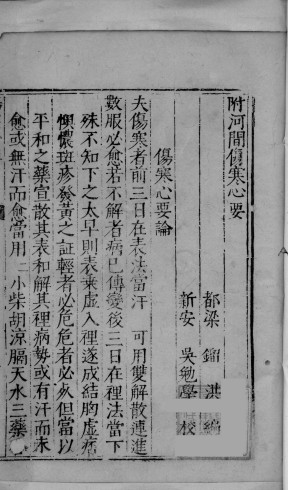 附河間傷寒心要
都梁 鎦洪 編
新安 吳勉學 校
傷寒心要論
夫傷寒者前三日在表法當汗 可用雙解散連進
數服必愈若不解者病已傳變後三日在裡法當下
殊不知下之太早則表乘虛入裡遂成結胸虛痞
懊憹斑疹發黃之証輕者必危危者必死但當以
平和之藥宣散其表和解其裡病勢或有汗而未
愈或無汗而愈當用 小柴胡涼膈天水三藥